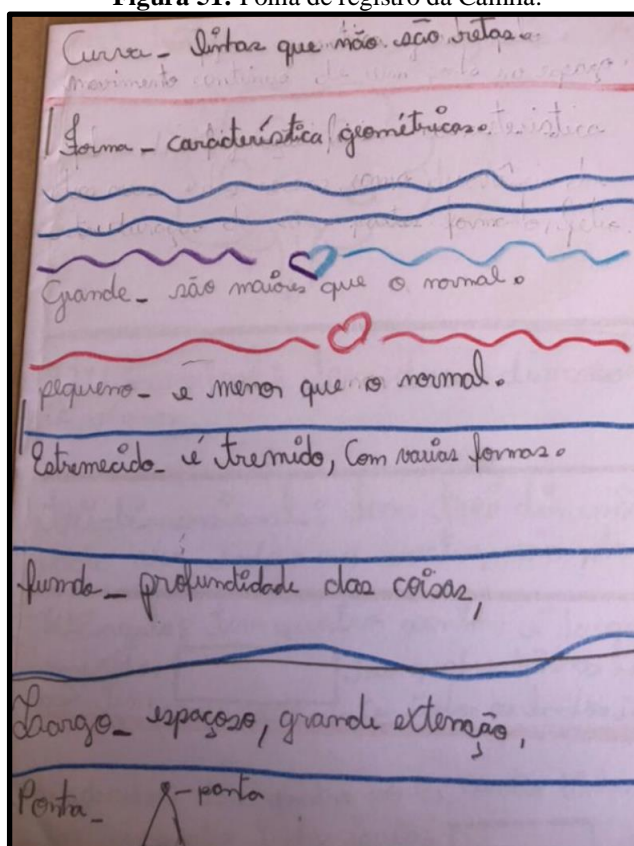 Figura 31: Folha de registro da Camila.
Curva - linhas que não são retas.
movimento contínuo de um no espaço
Forma - característica geométricas.
Grande - são maiores que o normal.
pequeno - é menor que o normal.
Estremecido - é tremido, com varias formas.
fundo - profundidade das coisas,
Largo - espaçoso, grande extenção,
Ponta - - ponta